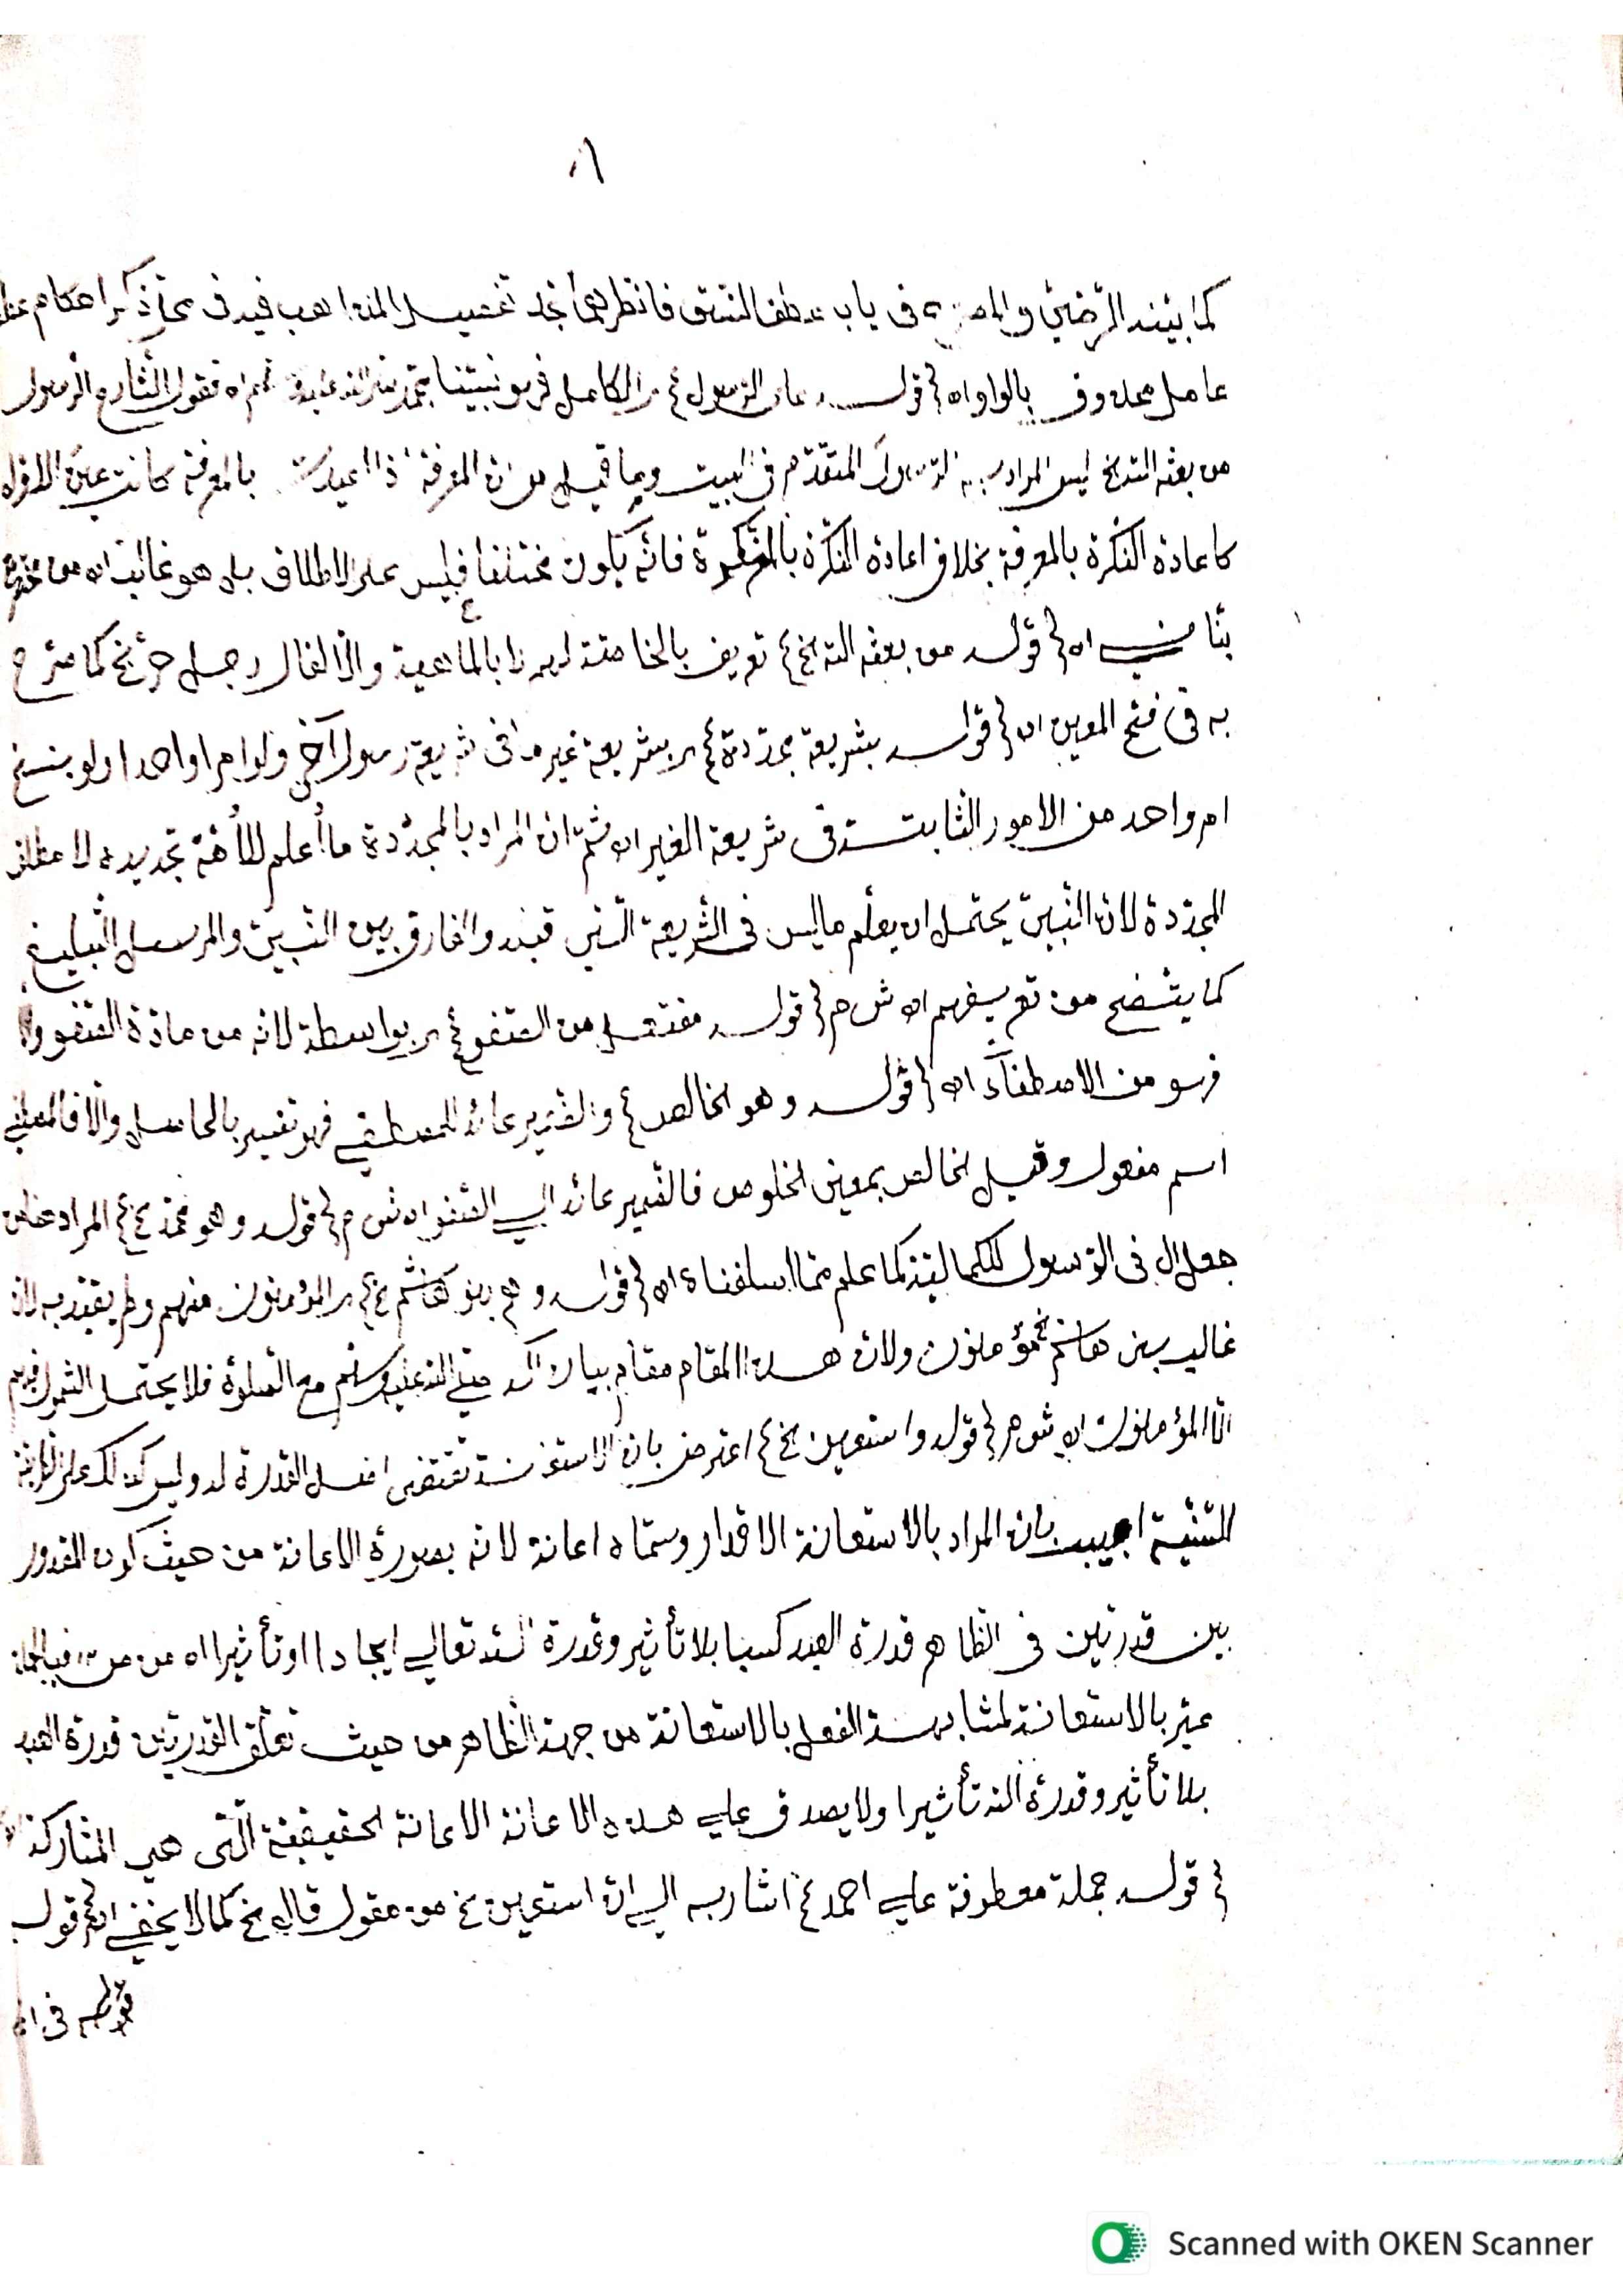 كما بينه الرضي في باب عطف النسق فانظرهما تجد تفصيل المذاهب فيه في ذكر احكام
عامل محذوف بالواو اه قوله على الرسول الكامل فهو نبيتنا فقول الشارح الرسول
من بعثه الله الخ ليس المراد به الرسول المتقدم في البيت وما قيل من ان المعرفة اذا اعيدت بالمعرفة كانت عين الاولى
كاعادة النكرة بالمعرفة بخلاف اعادة النكرة بالنكرة فانه يكون مختلفا فليس على الاطلاق بل هو غالب اه من
بناني اه قوله من بعثه الله الخ تعريف بالخاصة لا بالماهية والا لقال رجل حر الخ كما صرح
به في فتح المعين اه قوله بشريعة مجددة اي بشريعة غير ما في شريعة رسول آخر ولو امرا واحدا ولو بنسخ
امر واحد من الامور الثابتة في شريعة الغير اه ثم ان المراد بالمجددة ما أعلم للأمة تجديده لا مطلق
المجددة لان النبي يحتمل ان يعلم ما ليس في الشريعة التي قبله والفارق بين النبي والمرسل التبليغ
كما يتضح من تعريفهم اه ش م قوله مفتعل من الصفو اي بواسطة لانه من مادة الصفو والا
فهو من الاصطفآء اه قوله وهو الخالص والضمير عائد للمصطفى فهو تفسير بالحاصل والا فالمصطفى
اسم مفعول وقيل الخالص بمعنى الخلوص فالضمير عائد الى الصفو اه ش م قوله وهو محمد الخ المراد
جعل ال في الرسول للكمالية كما علم مما اسلفناه اه قوله وهم بنو هاشم الخ اي المؤمنون منهم ولم يقيد به لان
غالب بني هاشم مؤمنون ولان هذا المقام مقام بيان آله صلى الله عليه وسلم مع الصلوة فلا يحتمل الشمول فيهم
الا المؤمنون اه ش م قوله واستعين الخ اعترض بان الاستعانة تقتضي اصل القدرة له وليس كذلك على
السنية اجيب بان المراد بالاستعانة الاقدار وسماه اعانة لانه بصورة الاعانة من حيث كون المقدور
بين قدرتين في الظاهر قدرة العبد كسبا بلا تأثير وقدرة الله تعالى ايجادا او تأثيرا اه من
عبر بالاستعانة لمشابهة الفعل بالاستعانة من جهة الظاهر من حيث تعلق القدرتين قدرة العبد
بلا تأثير وقدرة الله تأثيرا ولا يصدق على هذه الاعانة الاعانة الحقيقية التي هي المشاركة
قوله جملة معطوفة على احمد الخ اشار به الى ان استعين الخ من مقول قال الخ كما لا يخفى اه قوله
قوله في
Scanned with OKEN Scanner